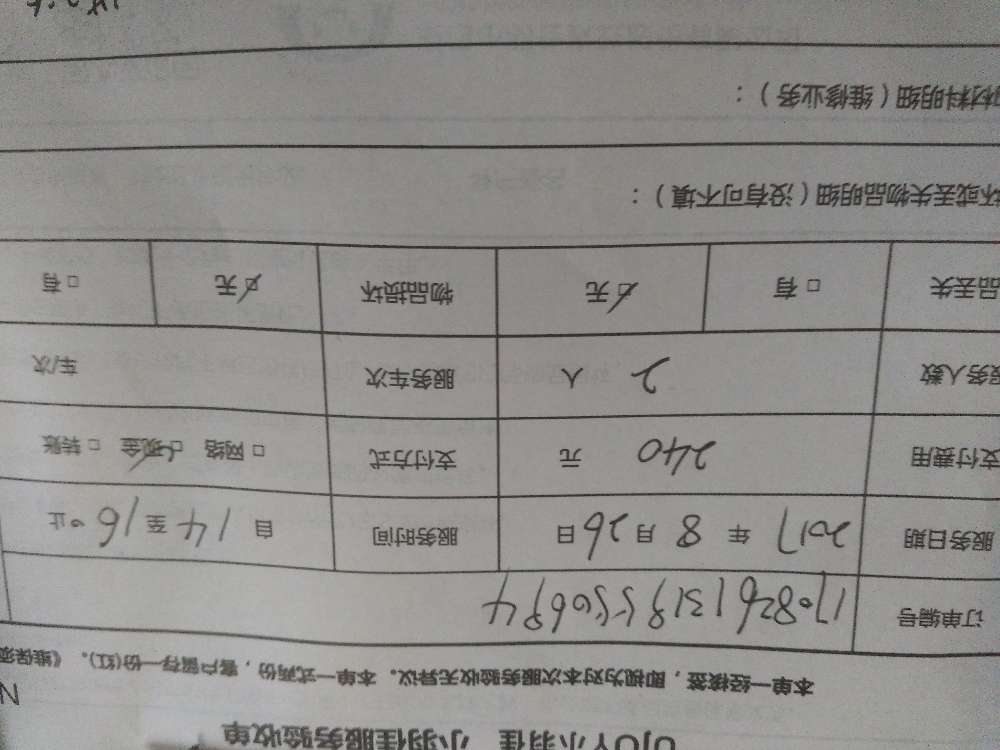 UJOY小羽佳 小羽佳服务验收单
N
本单一经续签，即视为对本次服务验收无异议。本单一式两份，客户留存一份(红)。《维保须
订单编号 1708261319550694
服务日期 2017 年 8 月 26 日 服务时间 自 14 至 16 止
支付费用 240 元 支付方式 □ 网络 □ 现金 □ 转账
服务人数 2 人 服务车次 车/次
品丢失 □ 有 □ 无 物品损坏 □ 无 □ 有
坏或丢失物品明细（没有可不填）：
材料明细（维修业务）：